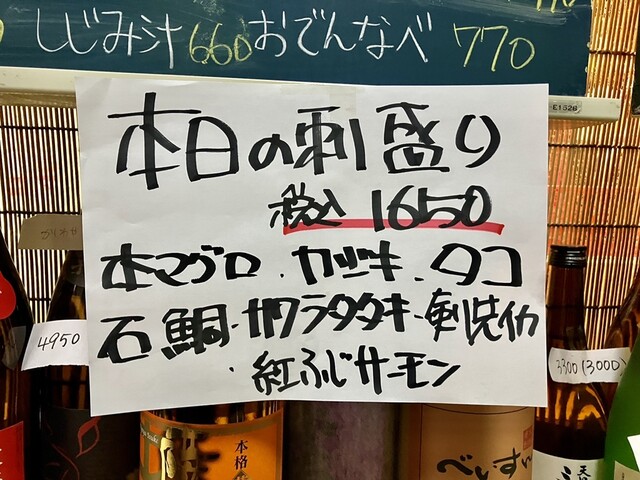 しじみ汁 660 おでんなべ 770
E1526
本日の刺盛り
税込 1650
本マグロ.カヅキ.タコ
石鯛.サワラタタキ.剣先イカ
.紅ふじサーモン
4950
3300(300D)
本格
べいすい